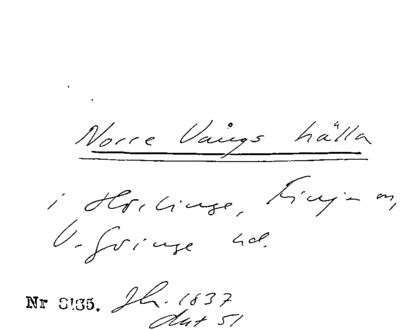 Norre Vångs hälla
i Hörlinge, Finja sn,
V. Göinge hd.
Nr 8135. Jh. 1837
dat 51